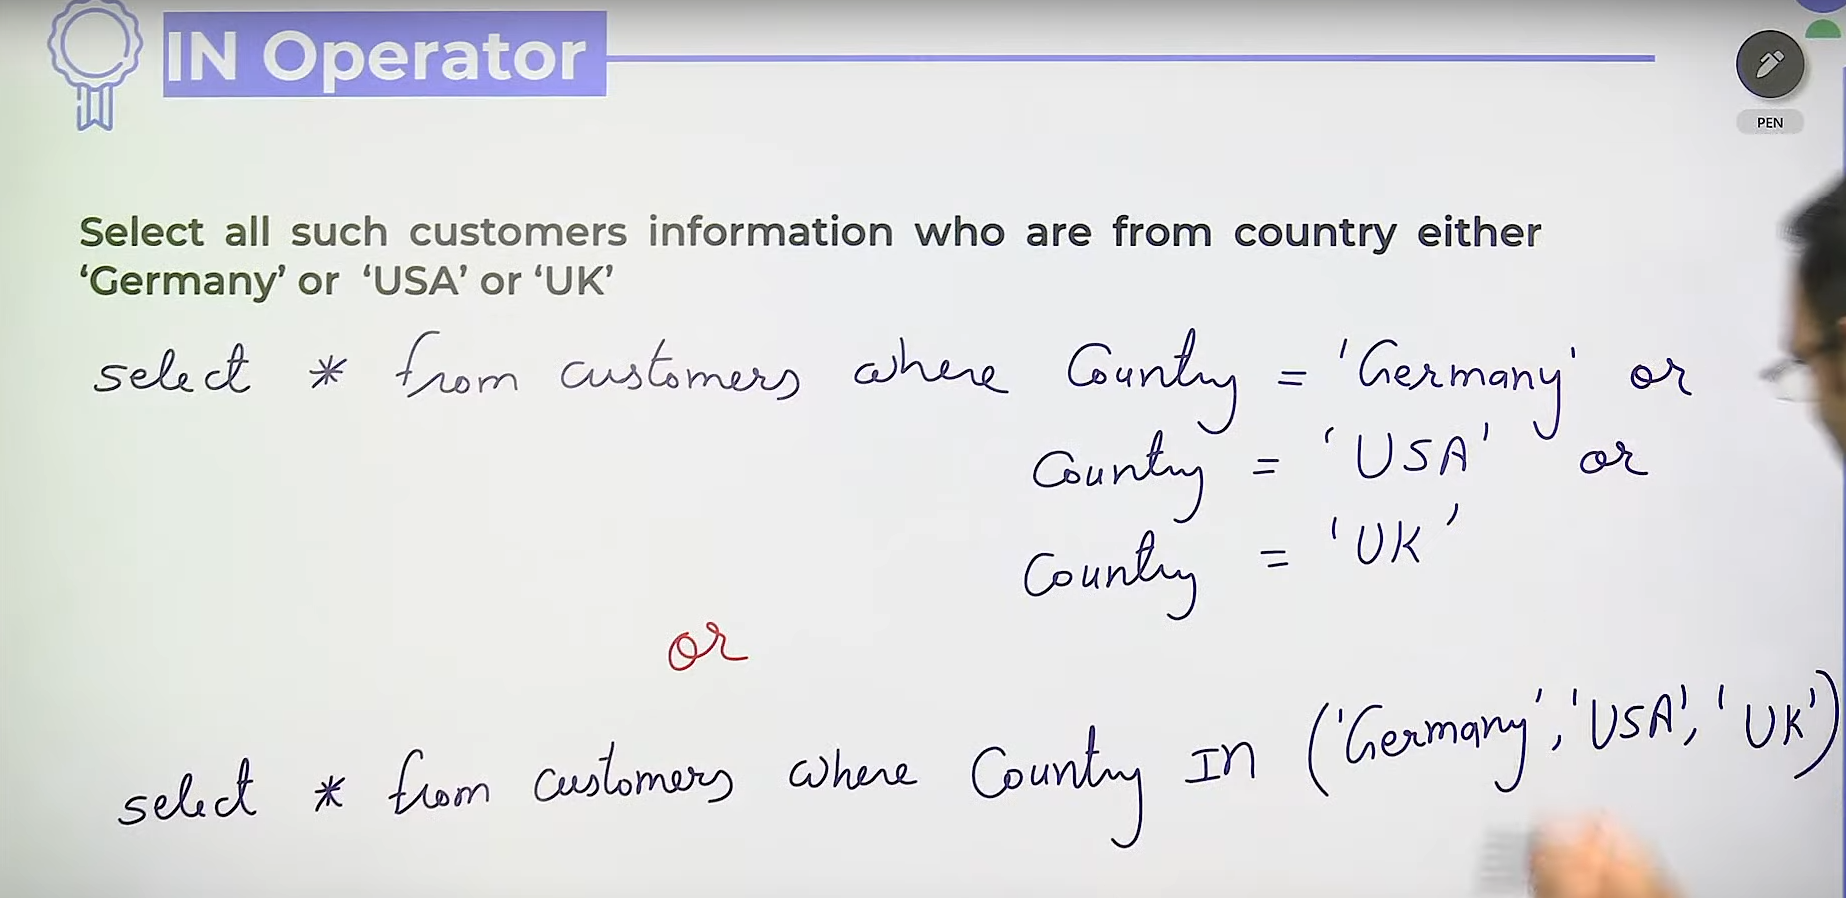 IN Operator
PEN
Select all such customers information who are from country either
‘Germany’ or ‘USA’ or ‘UK’
select * from customers where Country = 'Germany' or
Country = 'USA' or
Country = 'UK'
or
select * from customers where Country IN ('Germany', 'USA', 'UK')